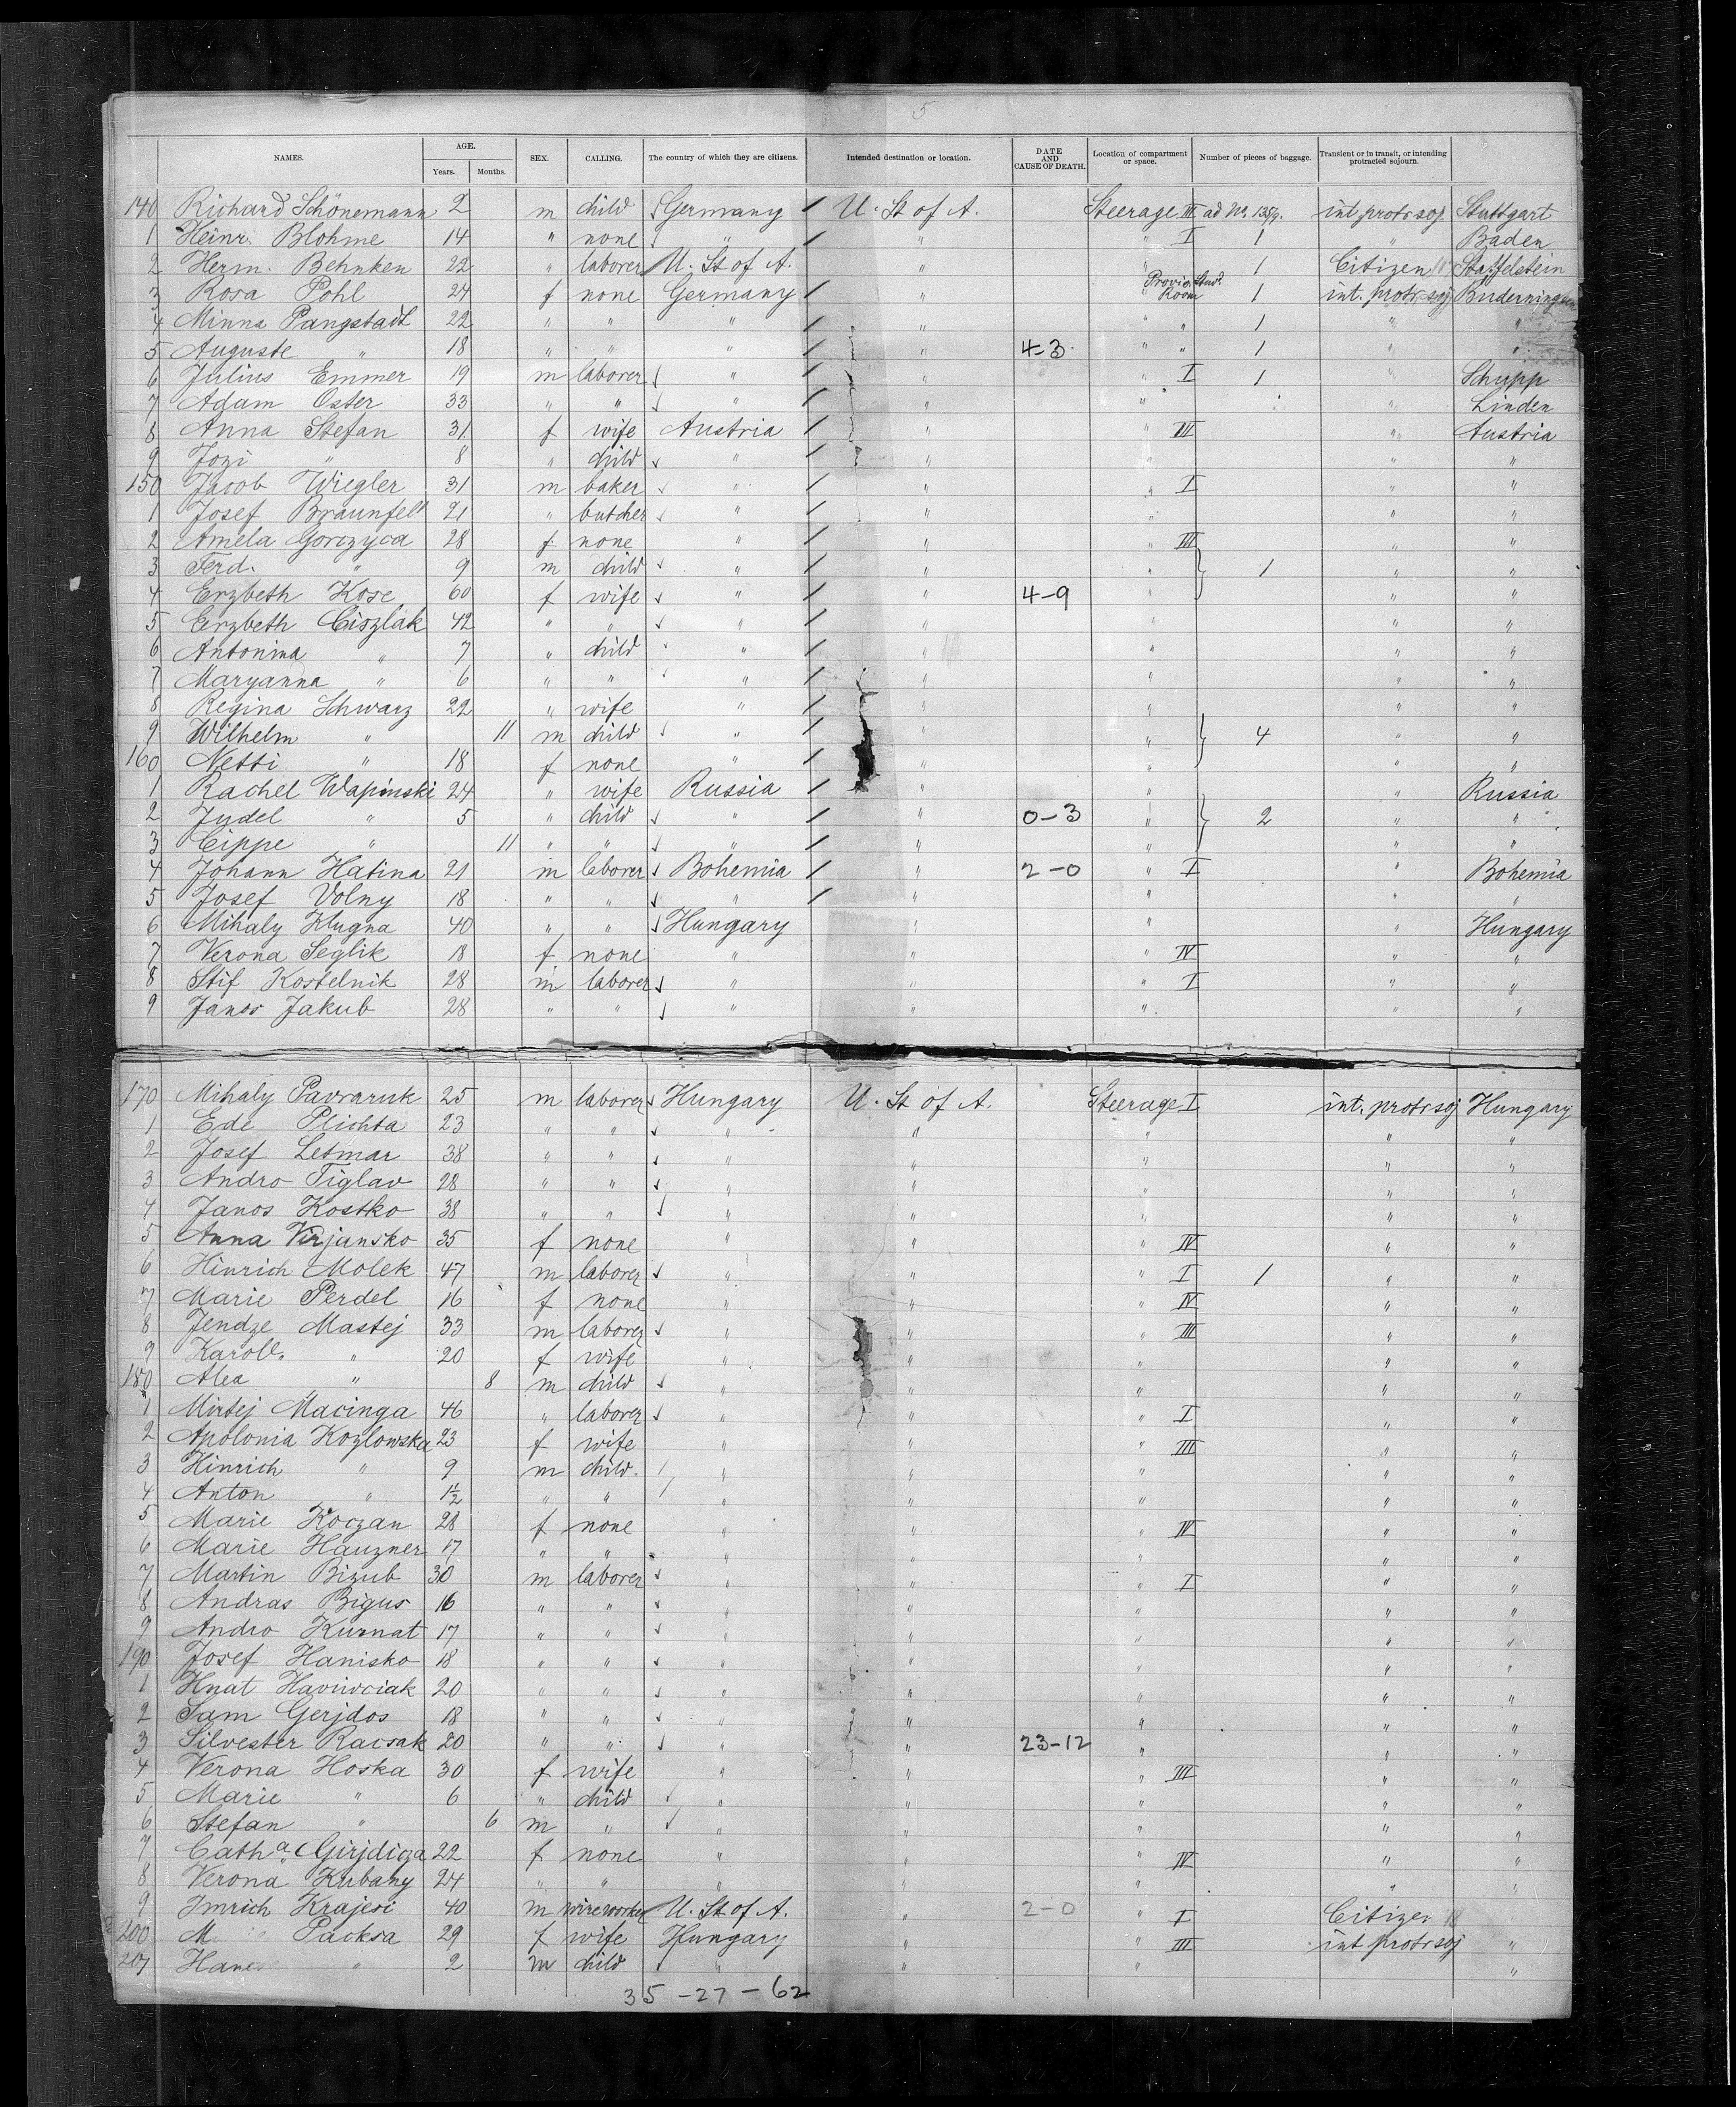 5
NAMES. AGE. Years. Months. SEX. CALLING. The country of which they are citizens. Intended destination or location. DATE AND CAUSE OF DEATH. Location of compartment or space. Number of pieces of baggage. Transient or in transit, or intending protracted sojourn.
140 Richard Schönemann 2 m child Germany / U. St of A. Steerage III ad No. 138/9. int. protr. soj. Stuttgart
1 Heinr. Blohme 14 " none " / " " I 1 " Baden
2 Herm. Behnken 22 " laborer U. St of A. " " 1 Citizen Staffelstein
3 Rosa Pohl 24 f none Germany / " " Room 1 int. protr. soj
4 Minna Pangstadt 22 " " " / " " " 1 " "
5 Auguste " 18 " " " / " 4-3 " " 1 " "
6 Julius Emmer 19 m laborer " / " " I 1 " Schupp
7 Adam Oster 33 " " " / " " " Linden
8 Anna Stefan 31 f wife Austria / " " III " Austria
9 Jozi " 8 " child " / " " " "
150 Jacob Wiegler 31 m baker " / " " I " "
1 Josef Braunfell 21 " butcher " / " " " "
2 Amela Gorczyca 28 f none " / " " III " "
3 Ferd. " 9 m child " / " " 1 " "
4 Erzbeth Kose 60 f wife " / " 4-9 " " "
5 Erzbeth Ciszlak 42 " " " / " " " "
6 Antonina " 7 " child " / " " " "
7 Maryanna " 6 " " " / " " " "
8 Regina Schwarz 22 " wife " / " " " "
9 Wilhelm " 11 m child " / " " 4 " "
160 Netti " 18 f none " / " " " "
1 Rachel Wapinski 24 " wife Russia / " " " Russia
2 Judel " 5 " child " / " 0-3 " 2 " "
3 Cippe " 11 " " " / " " " "
4 Johann Hatina 21 m laborer Bohemia / " 2-0 " I " Bohemia
5 Josef Volny 18 " " " / " " " "
6 Mihaly Klugna 40 " " Hungary " " " Hungary
7 Verona Seglik 18 f none " " " IV " "
8 Stif Kostelnik 28 m laborer " " " I " "
9 Janos Jakub 28 " " " " " " "
170 Mihaly Pavraruk 25 m laborer Hungary U. St of A. Steerage I int. protr soj Hungary
1 Ede Plichta 23 " " " " " " "
2 Josef Letmar 38 " " " " " " "
3 Andro Tiglav 28 " " " " " " "
4 Janos Kostko 38 " " " " " " "
5 Anna Virjansko 35 f none " " " IV " "
6 Hinrich Molek 47 m laborer " " " I 1 " "
7 Marie Perdel 16 f none " " " IV " "
8 Jendze Mastej 33 m laborer " " " III " "
9 Karoll. " 20 f wife " " " " "
180 Alea " 8 m child " " " " "
1 Mirtej Macinga 46 " laborer " " " I " "
2 Apolonia Kozlowska 23 f wife " " " III " "
3 Hinrich " 9 m child " " " " "
4 Anton " 1½ " " " " " " "
5 Marie Koczan 28 f none " " " IV " "
6 Marie Hauzner 17 " " " " " " "
7 Martin Bizub 30 m laborer " " " I " "
8 Andras Bigus 16 " " " " " " "
9 Andro Kurnat 17 " " " " " " "
190 Josef Hanisko 18 " " " " " " "
1 Hnat Haviwciak 20 " " " " " " "
2 Sam Gerjdos 18 " " " " " " "
3 Silvester Racsak 20 " " " " 23-12 " " "
4 Verona Hoska 30 f wife " " " III " "
5 Marie " 6 " child " " " " "
6 Stefan " 6 m " " " " " "
7 Catha. Girjdicza 22 f none " " " IV " "
8 Verona Kubany 24 " " " " " " "
9 Imrich Krajesi 40 m wireworker U. St. of A. " 2-0 " I Citizen
200 M Packsa 29 f wife Hungary " " III int protr soj "
201 " 2 m child " " " "
35-27-62